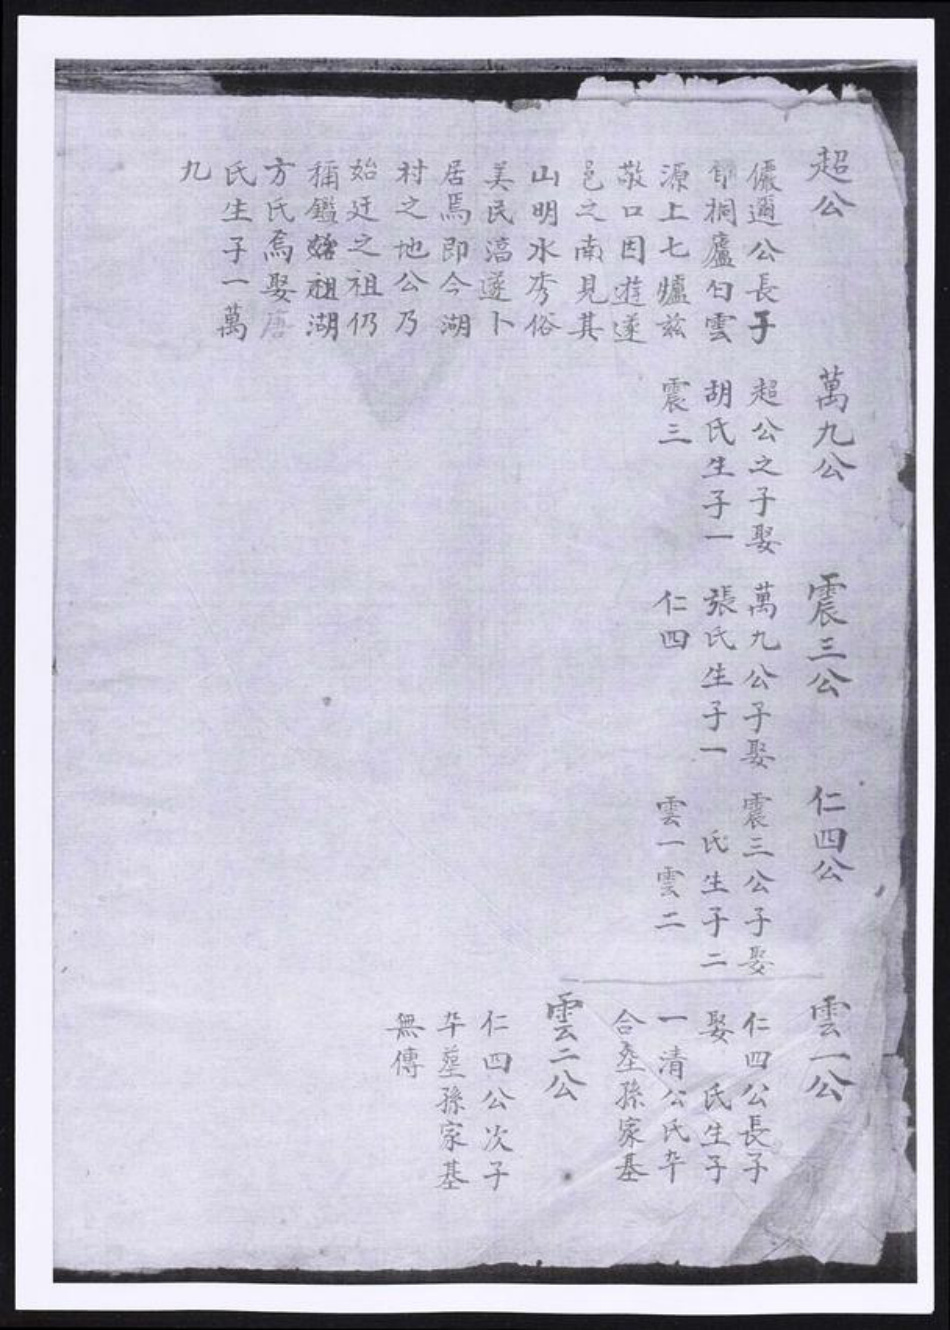 超公
儼邇公長子
桐廬白雲
源上七墟茲
敬口因遊遂
邑之南見其
山明水秀俗
美民淳遂卜
居焉即今湖
村之地公乃
始迁之祖仍
稱鑑始祖湖
方氏焉娶唐
氏生子一萬
九
萬九公
超公之子娶
胡氏生子一
震三
震三公
萬九公子娶
張氏生子一
仁四
仁四公
震三公子娶
氏生子二
雲一雲二
雲一公
仁四公長子
娶 氏生子
一清公氏卒
合塟孫家基
雲二公
仁四公次子
卒塟孫家基
無傳